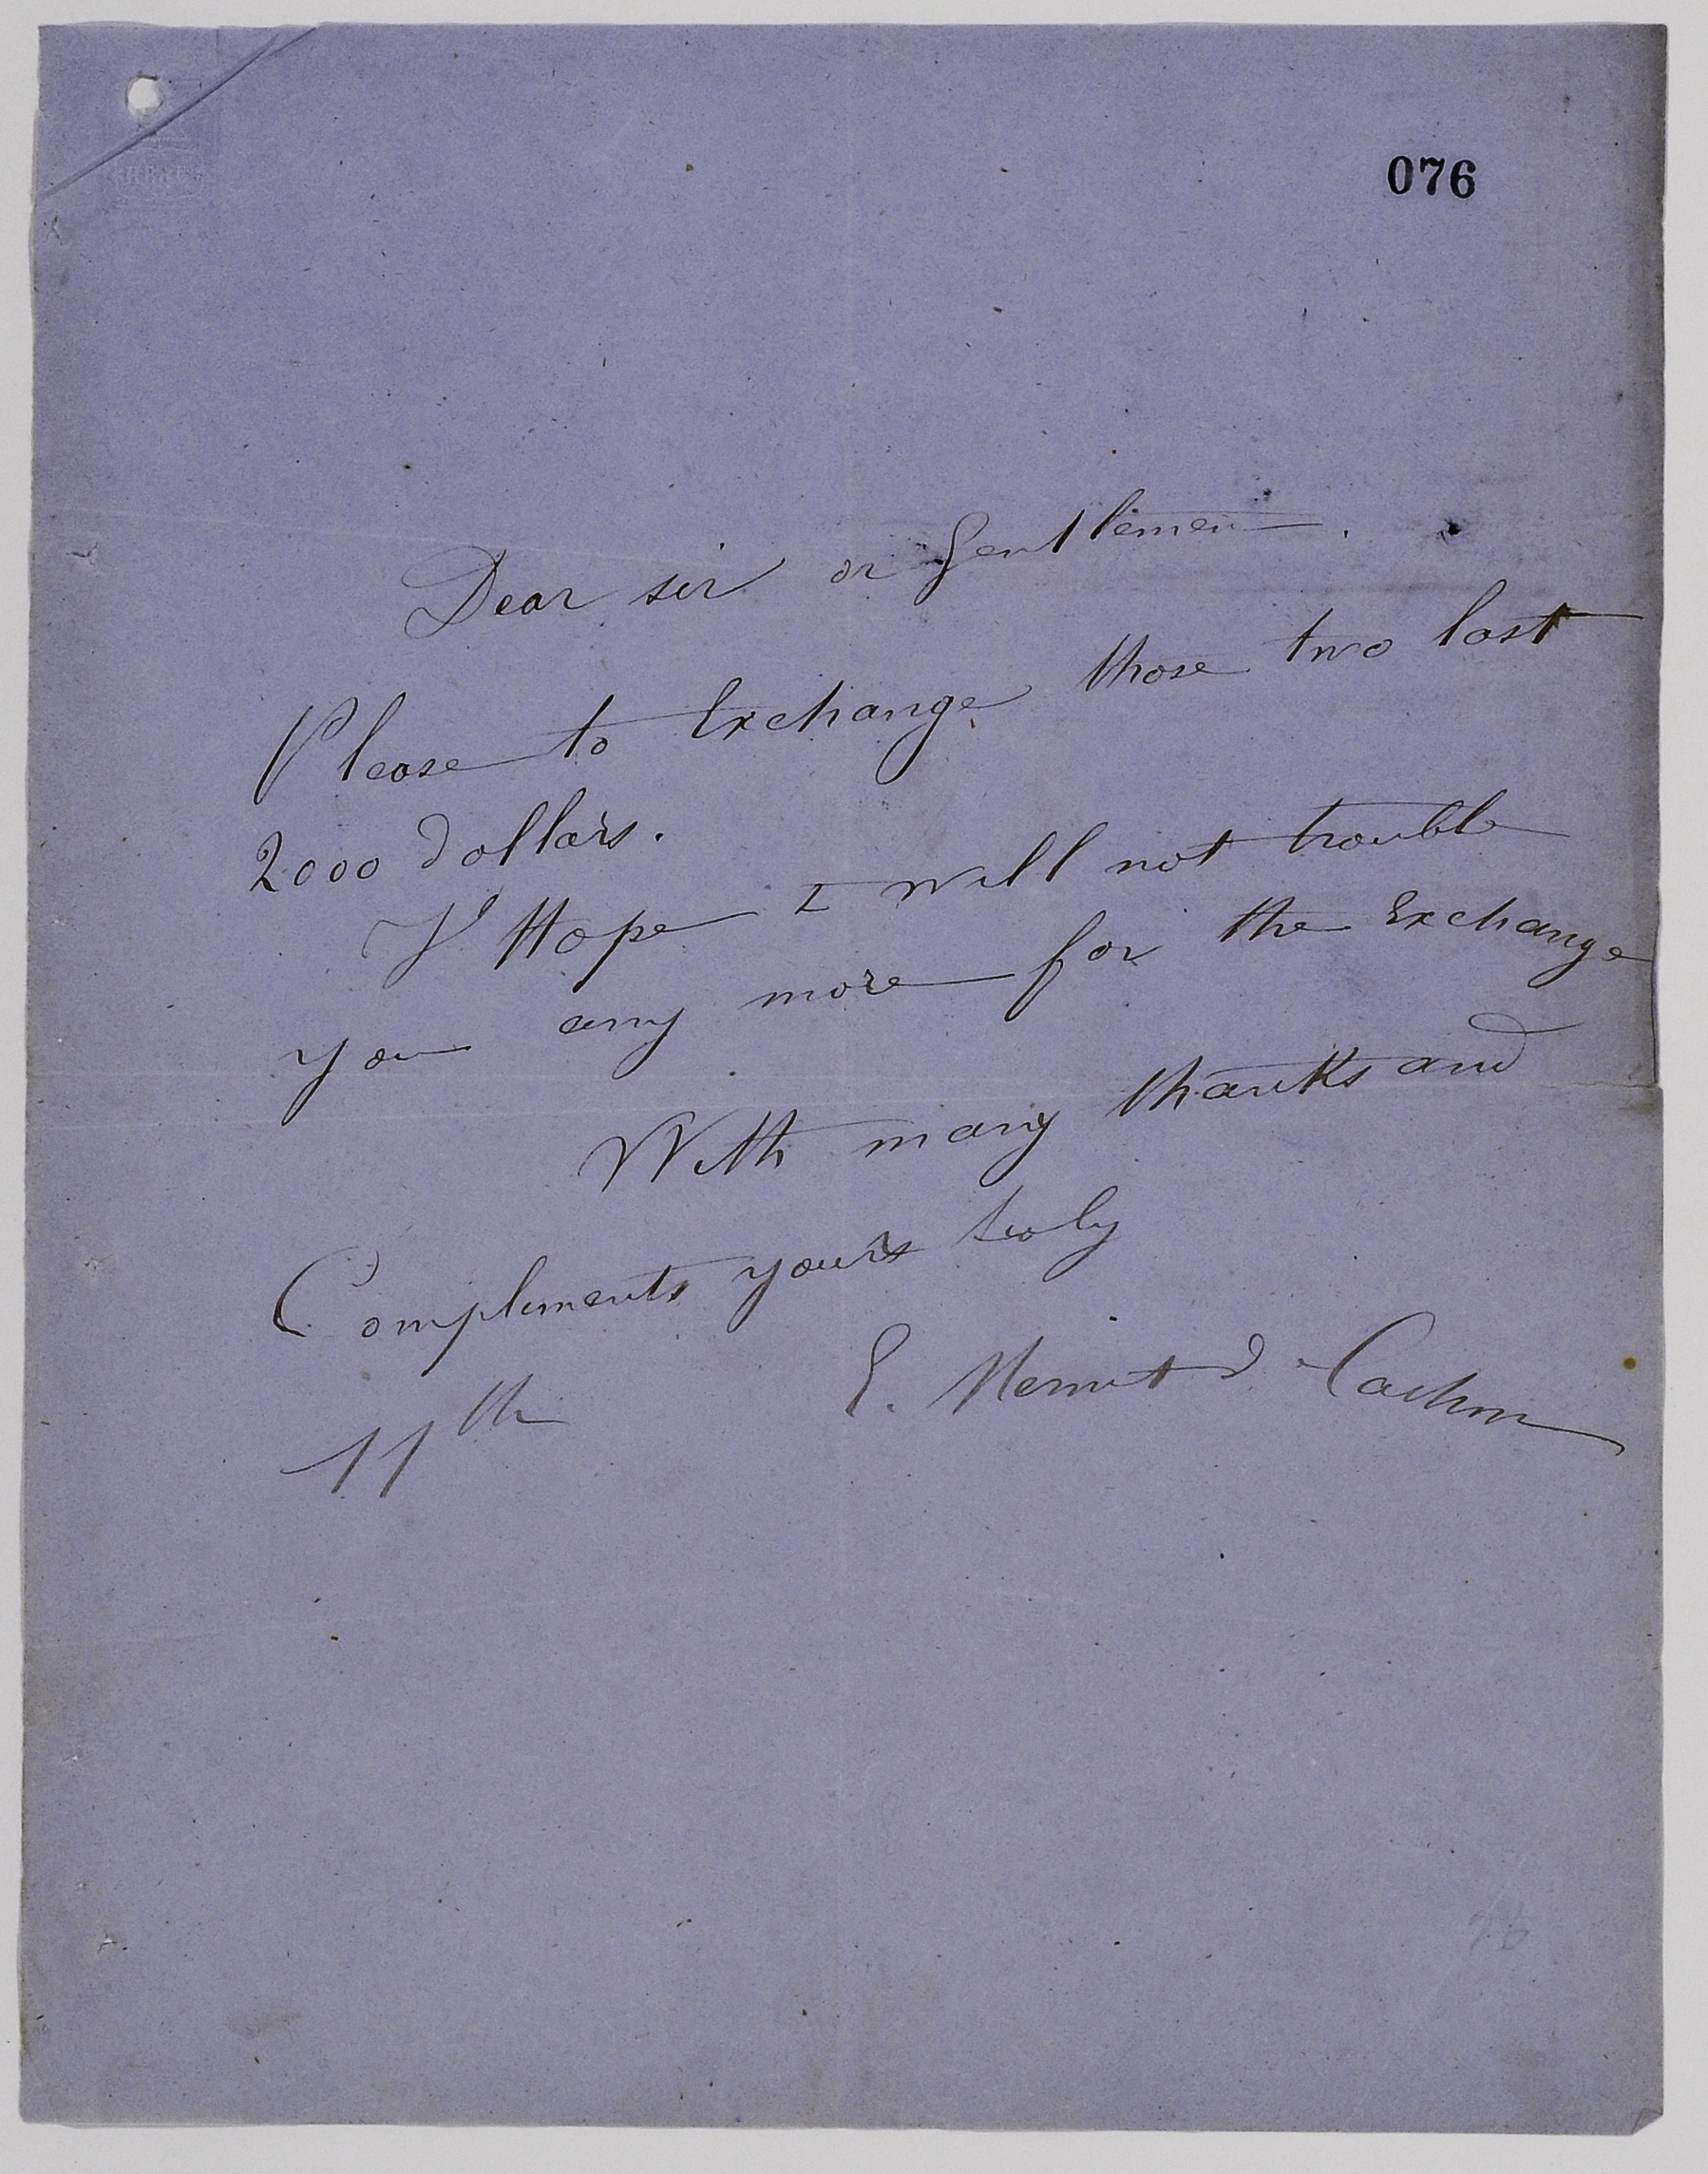 076
Dear sir or Gentlemen.
Please to Exchange those two last
2000 dollars.
I Hope I will not trouble
you any more for the Exchange
With many thanks and
Compliments yours truly
E.
11th